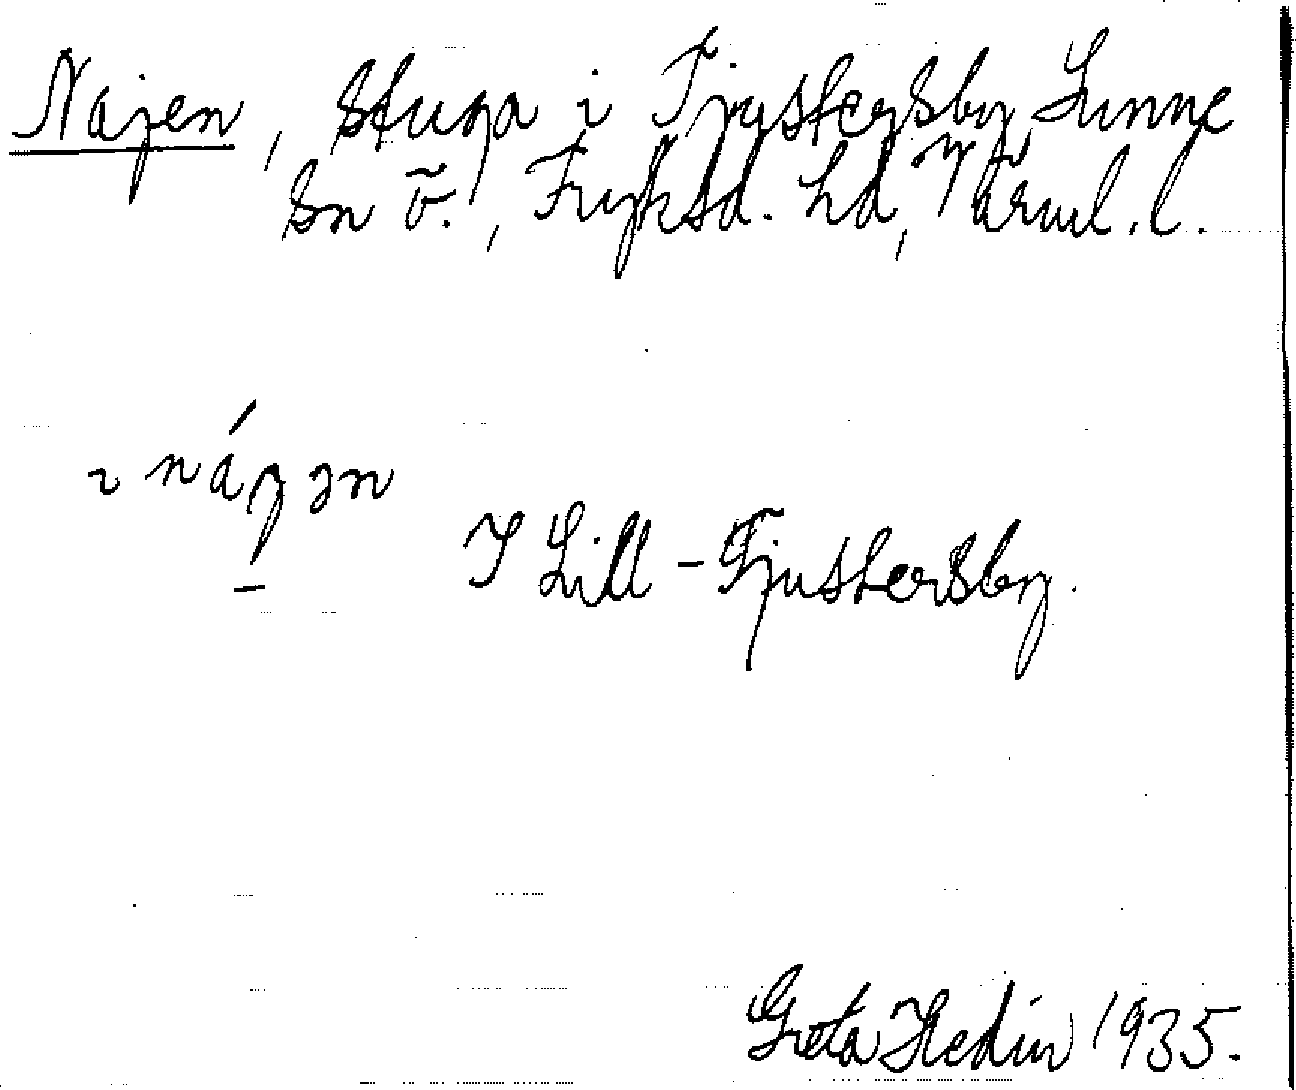 Najen, stuga i Tjystersby, Sunne
sn ö., Fryksd. hd, Värml. l.
i náɡ̣ən
I Lill-Tjustersby.
Greta Hedin 1935.